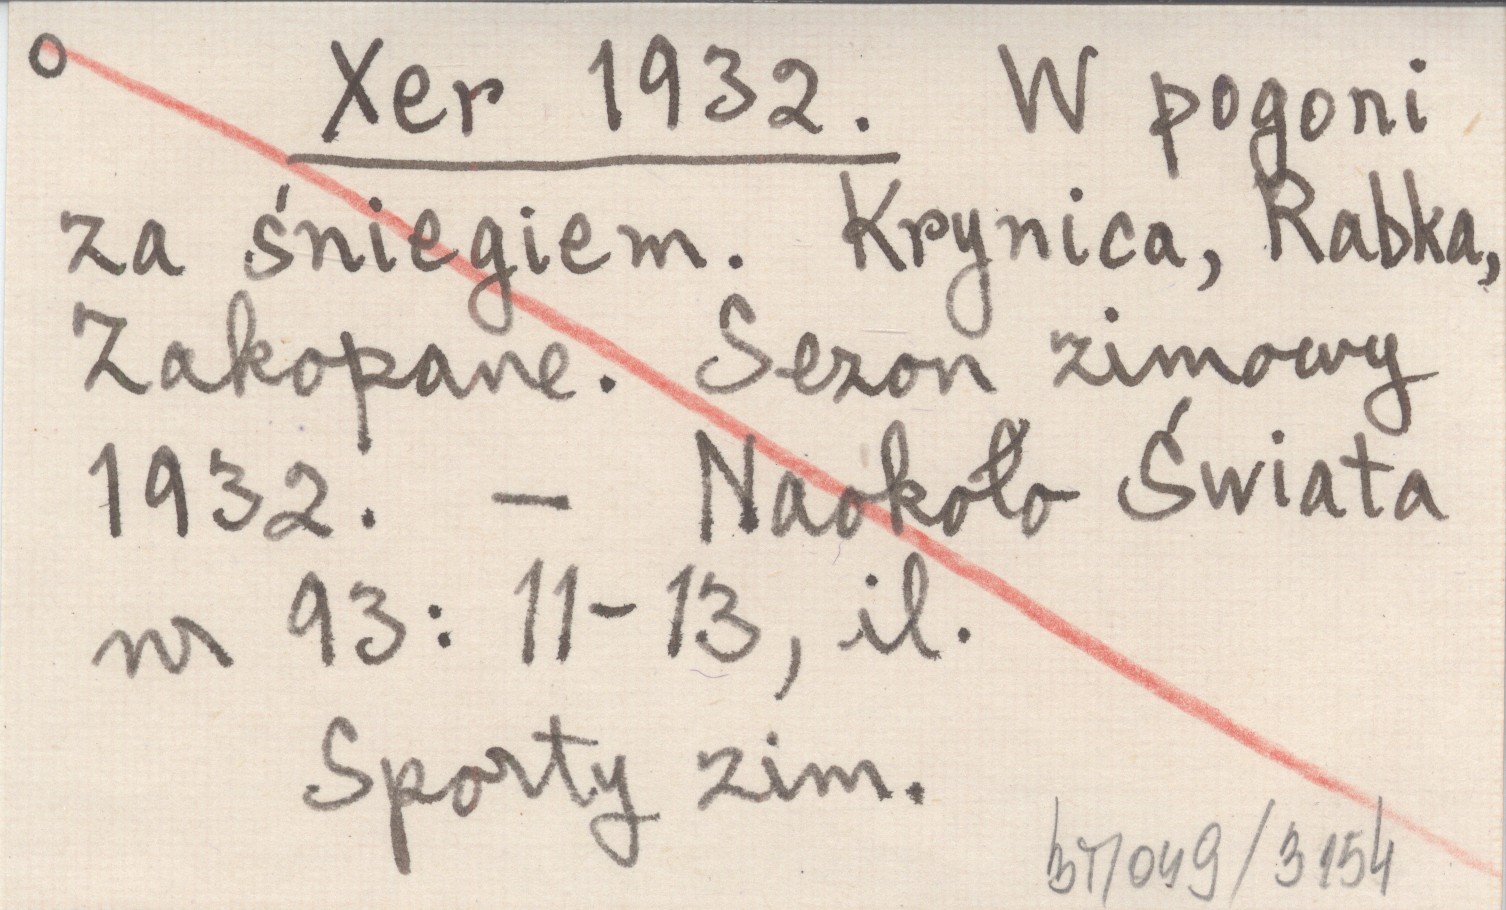 o Xer 1932. W pogoni
za śniegiem. Krynica, Rabka,
Zakopane. Sezon zimowy
1932. – Naokoło Świata
nr 93: 11-13, il.
Sporty zim.
/3154